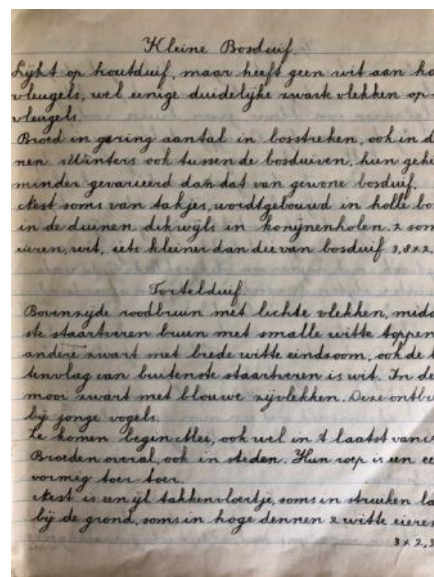 Kleine Bosduif.
Lijkt op houtduif, maar heeft geen wit aan
vleugels, wel eenige duidelijke zwart vlekken op
vleugels.
Broed in gering aantal in bosstreken, ook in
nen. Winters ook tussen de bosduiven, hun
minder gevarieerd dan dat van gewone bosduif.
Nest soms van takjes, wordt gebouwd in holle
in de duinen dikwijls in konijnenholen. 2
eieren, wit, iets kleiner dan die van bosduif 3,8 x 2,
Tortelduif.
Bovenzijde roodbruin met lichte vlekken,
ste staartveren bruin met smalle witte toppen
andere zwart met brede witte eindzoom, ook de
tenvlag van buitenste staartveren is wit. In de
mooi zwart met blouwe zijvlekken. Deze
bij jonge vogels.
Ze komen begin Mei, ook wel in 't laatst van
Broeden overal, ook in steden. Hun roep is een
vormig toer toer.
Nest is een ijl takkenvloertje, soms in struiken
bij de grond, soms in hoge dennen 2 witte eieren
3 x 2,3